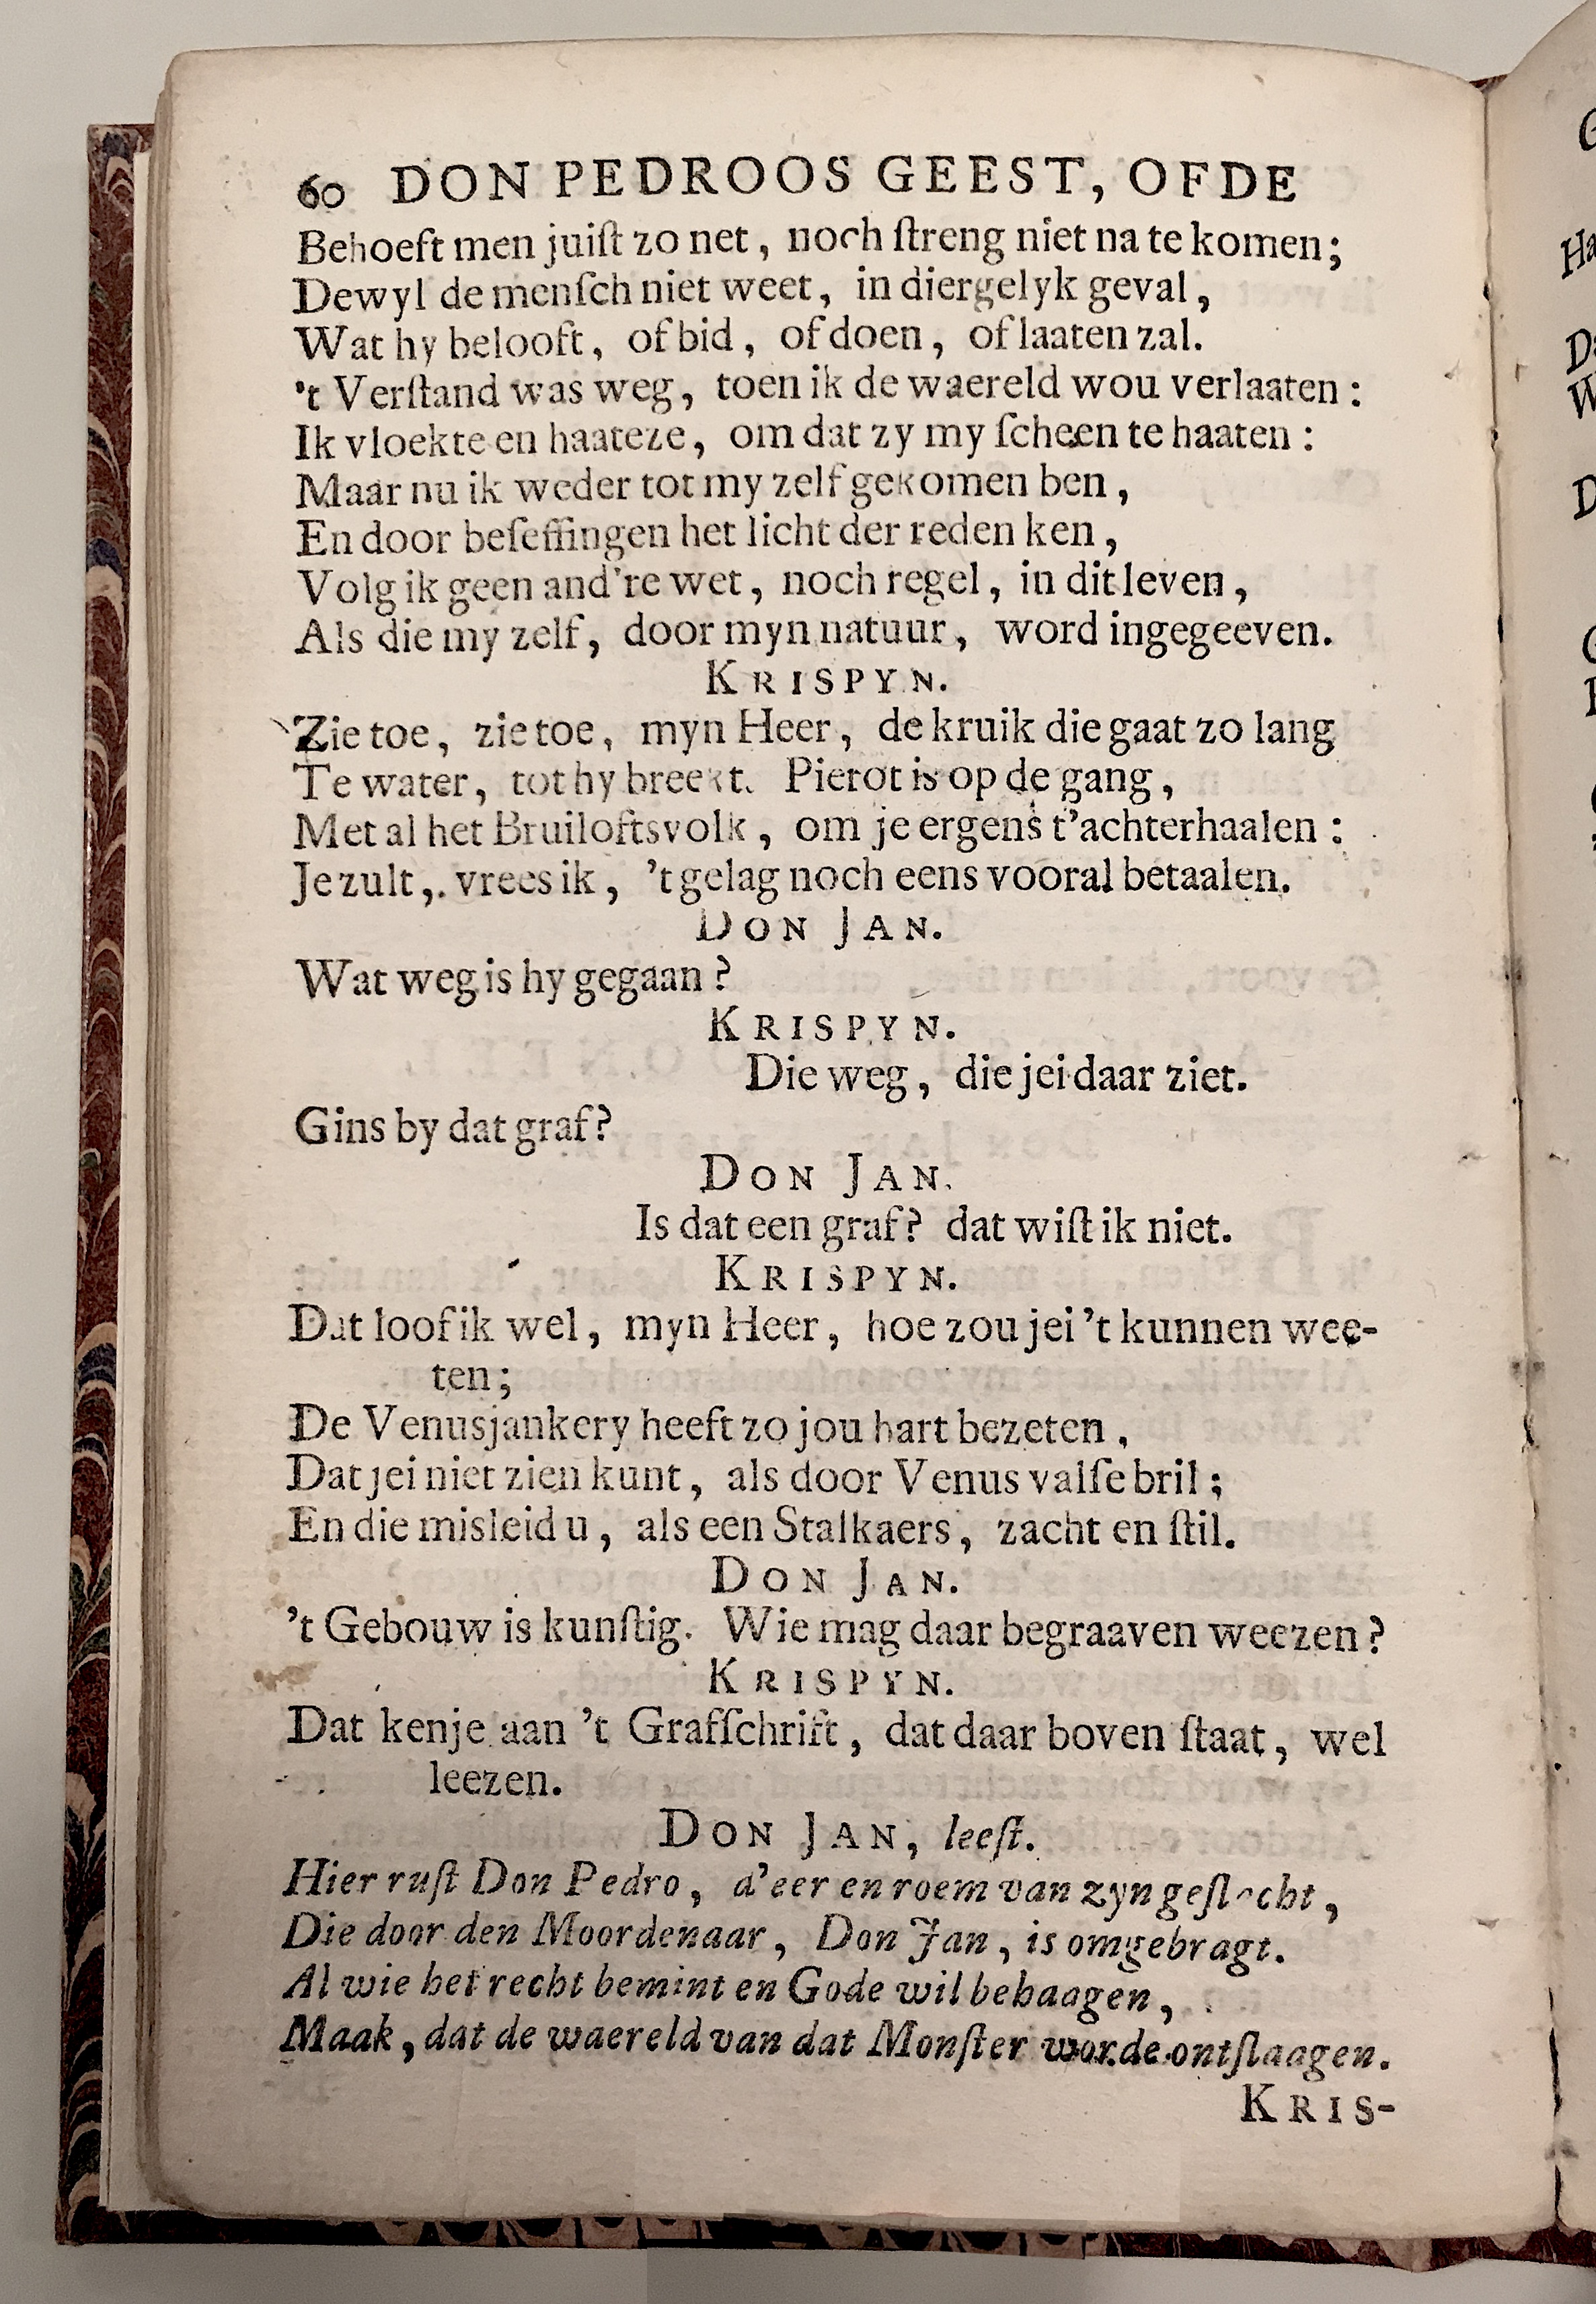 60 DON PEDROOS GEEST, OF DE
Behoeft men juiſt zo net, noch ſtreng niet na te komen;
Dewyl de menſch niet weet, in diergelyk geval,
Wat hy belooft, of bid, of doen, of laaten zal.
't Verſtand was weg, toen ik de waereld wou verlaaten:
Ik vloekte en haateze, om dat zy my ſcheen te haaten:
Maar nu ik weder tot my zelf gekomen ben,
En door beſeffingen het licht der reden ken,
Volg ik geen and're wet, noch regel, in dit leven,
Als die my zelf, door myn natuur, word ingegeeven.
KRISPYN.
Zie toe, zie toe, myn Heer, de kruik die gaat zo lang
Te water, tot hy breekt. Pierot is op de gang,
Met al het Bruiloftsvolk, om je ergens t'achterhaalen:
Je zult, vrees ik, 't gelag noch eens vooral betaalen.
DON JAN.
Wat weg is hy gegaan?
KRISPYN.
Die weg, die jei daar ziet.
Gins by dat graf?
DON JAN.
Is dat een graf? dat wiſt ik niet.
KRISPYN.
Dat loof ik wel, myn Heer, hoe zou jei 't kunnen wee-
ten;
De Venusjankery heeft zo jou hart bezeten,
Dat jei niet zien kunt, als door Venus valſe bril;
En die misleid u, als een Stalkaers, zacht en ſtil.
DON JAN.
't Gebouw is kunſtig. Wie mag daar begraaven weezen?
KRISPYN.
Dat kenje aan 't Grafſchrift, dat daar boven ſtaat, wel
leezen.
DON JAN, leeſt.
Hier ruſt Don Pedro, d'eer en roem van zyn geſlacht,
Die door den Moordenaar, Don Jan, is omgebragt.
Al wie het recht bemint en Gode wil behaagen,
Maak, dat de waereld van dat Monſter worde ontſlaagen.
KRIS-